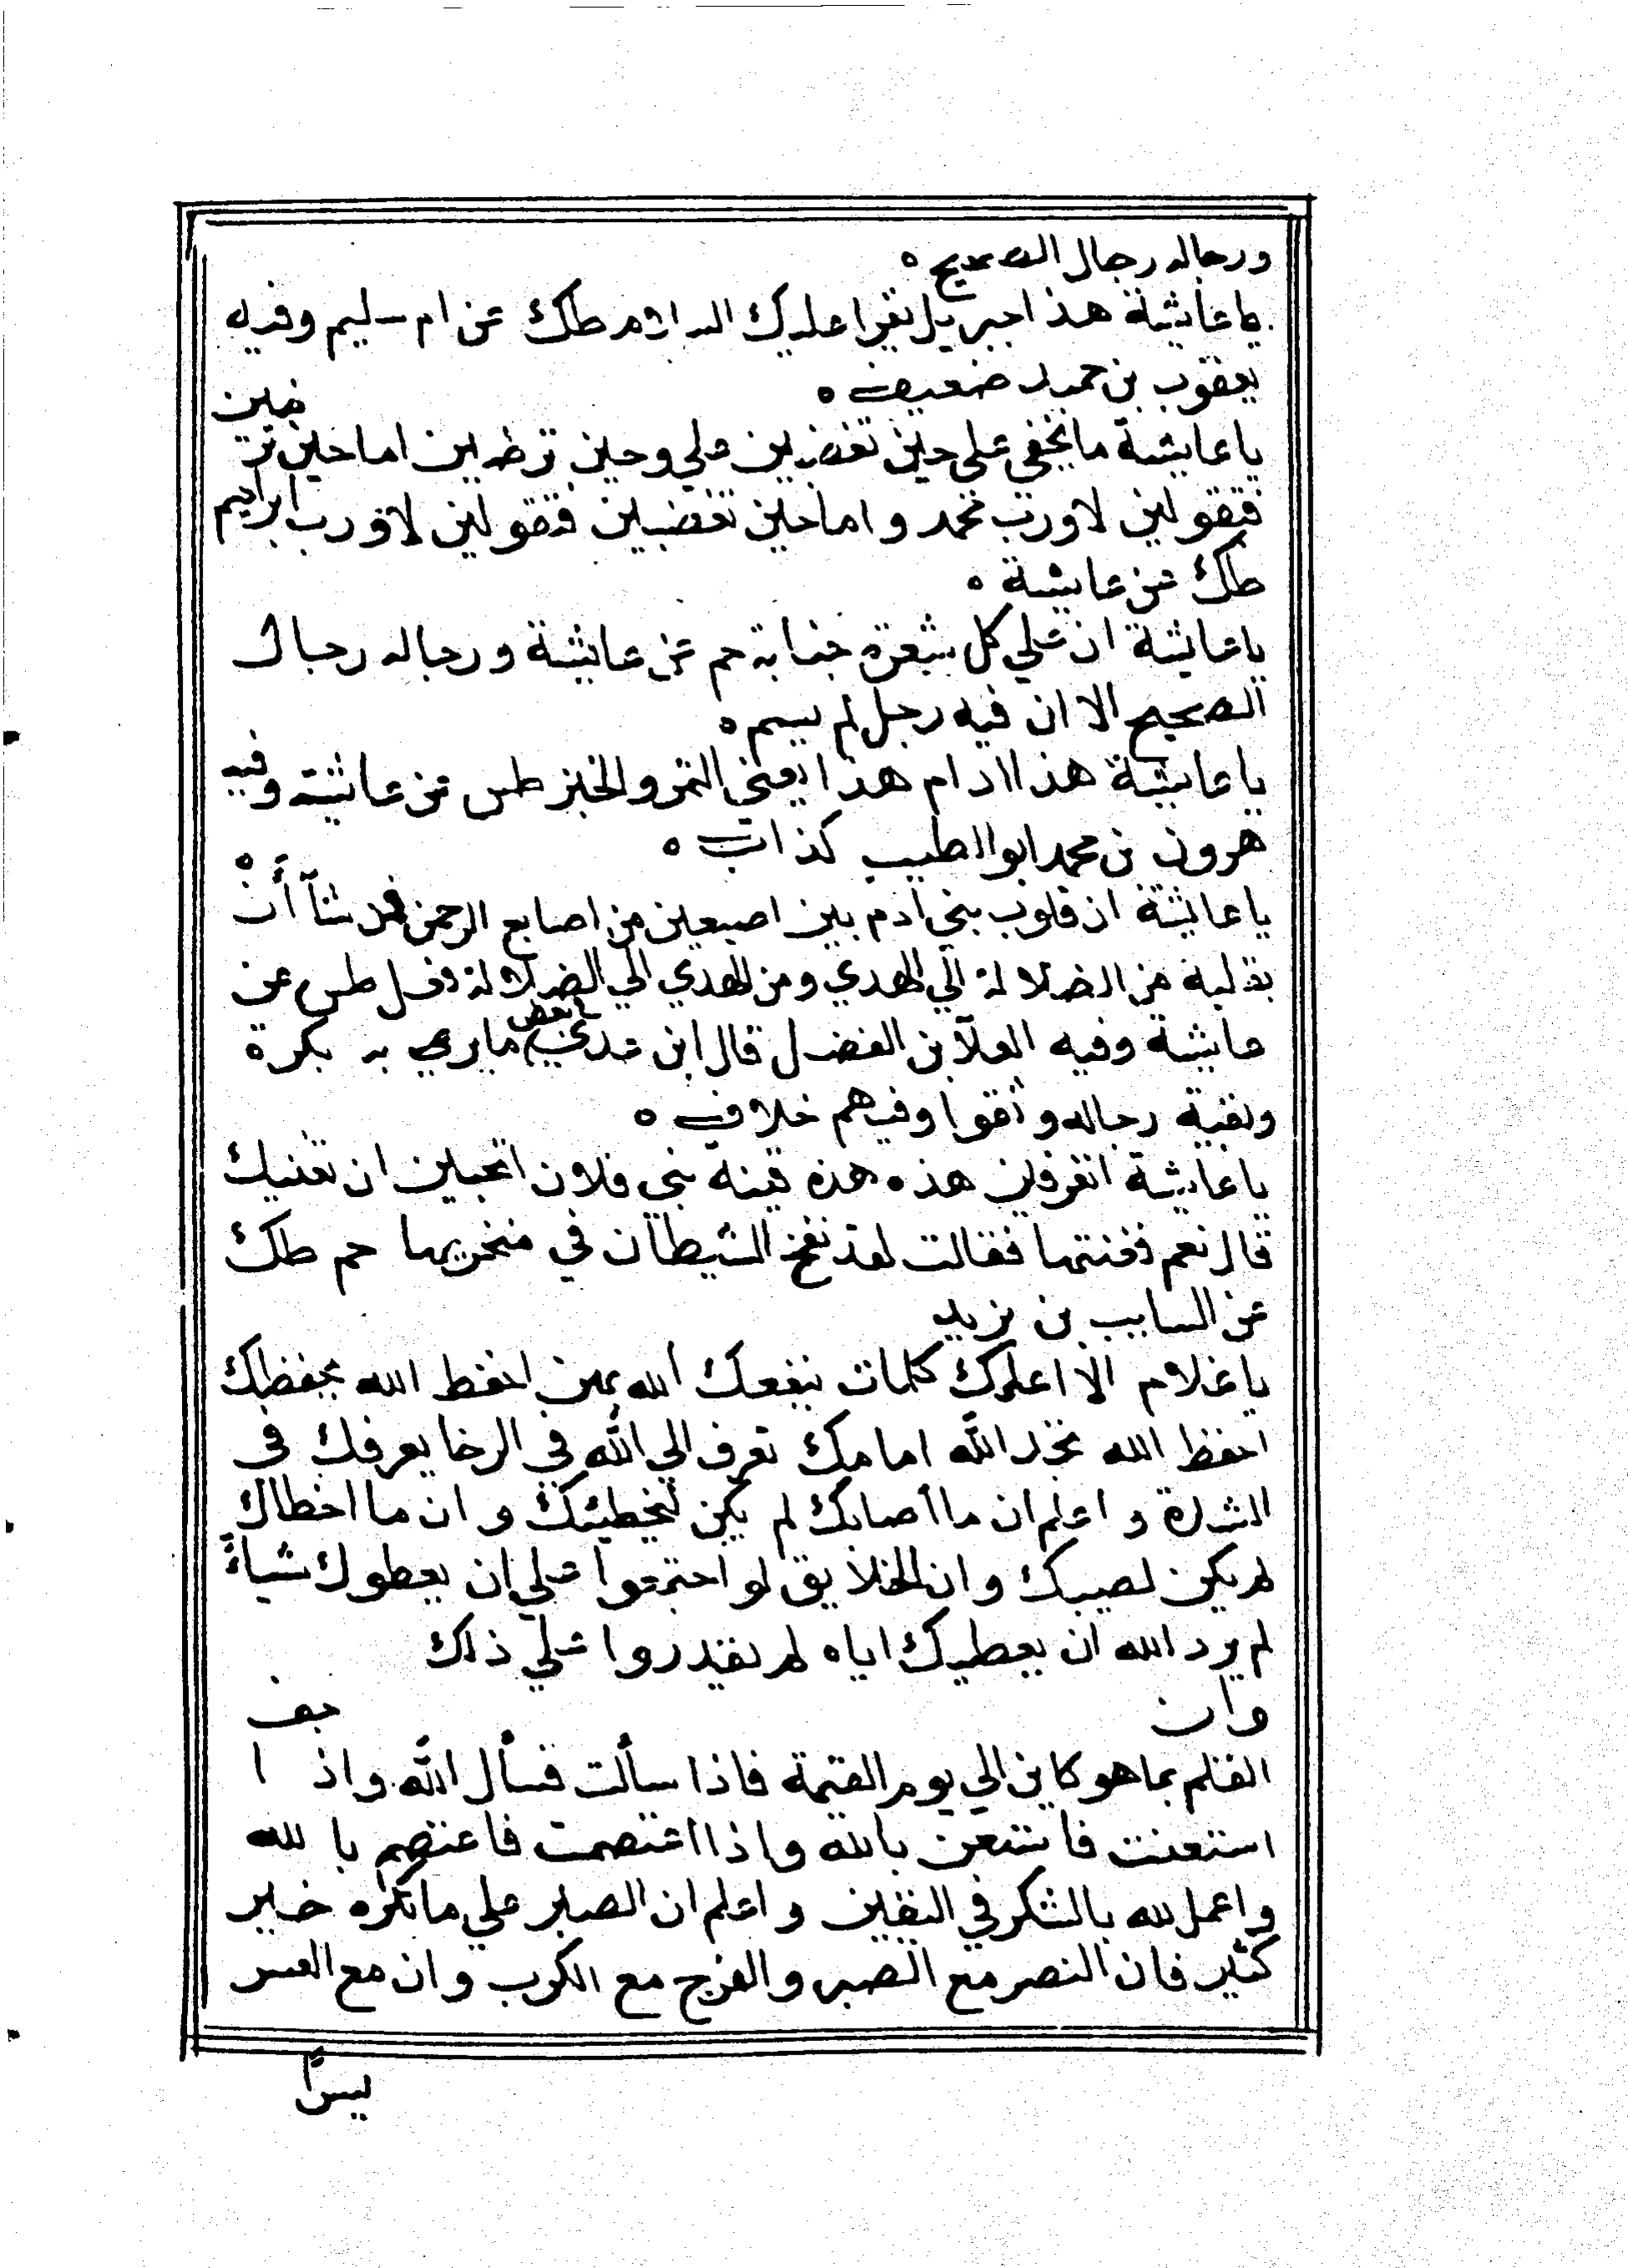 ورجاله رجال الصحيح ه
يا عايشة هذا جبريل يقرا عليك السلام طك عن ام سليم وفيه
يعقوب بن حميد ضعيف ه
يا عايشة ما يخفى على حين تغضبين علي وحين ترضين اما حين تر ضين
فتقولين لا ورب محمد و اما حين تغضبين فتقولين لا ورب ابراهيم
طك عن عايشة ه
يا عايشة ان علي كل شعرة جنابة حم عن عايشة ورجاله رجال
الصحيح الا ان فيه رجل لم يسم ه
يا عايشة هذا ادام هذا يعني التمر والخبز طس عن عايشة وفيه
هرون بن محمد ابو الطيب كذاب ه
يا عايشة ان قلوب بني ادم بين اصبعين من اصابع الرحمن شآ أن
يقلبه من الضلالة الي الهدي ومن الهدي الي الضلالة فعل طس عن
عايشة وفيه العلآ بن الفضل قال ابن عدي بعض ما يرويه بكره
وبقية رجاله وثقوا وفيهم خلاف ه
يا عايشة اتعرفين هذه هذه قينة بني فلان اتحبين ان تغنيك
قال نعم فغنتها فقالت لقد نفخ الشيطان في منخريها حم طك
عن السايب بن يزيد
يا غلام الا اعلمك كلمات ينفعك الله بهن احفظ الله يحفظك
احفظ الله تجد الله امامك تعرف الي الله في الرخا يعرفك في
الشدة و اعلم ان ما أصابك لم يكن ليخطيئك و ان ما اخطاك
لم يكن لصيبك وان الخلايق لو اجتمعوا علي ان يعطوك شياءً
لم يرد الله ان يعطيك اياه لم يقدروا علي ذلك
وان جف
القلم بما هو كاين الي يوم القيمة فاذا سألت فسأل الله واذ ا
استعنت فاستعن بالله واذا اعتصمت فاعتصم با لله
واعمل لله بالشكر في اليقين و اعلم ان الصبر علي ما تكره خير
كثير فان النصر مع الصبر والفرج مع الكرب وان مع العسر
يسرًا